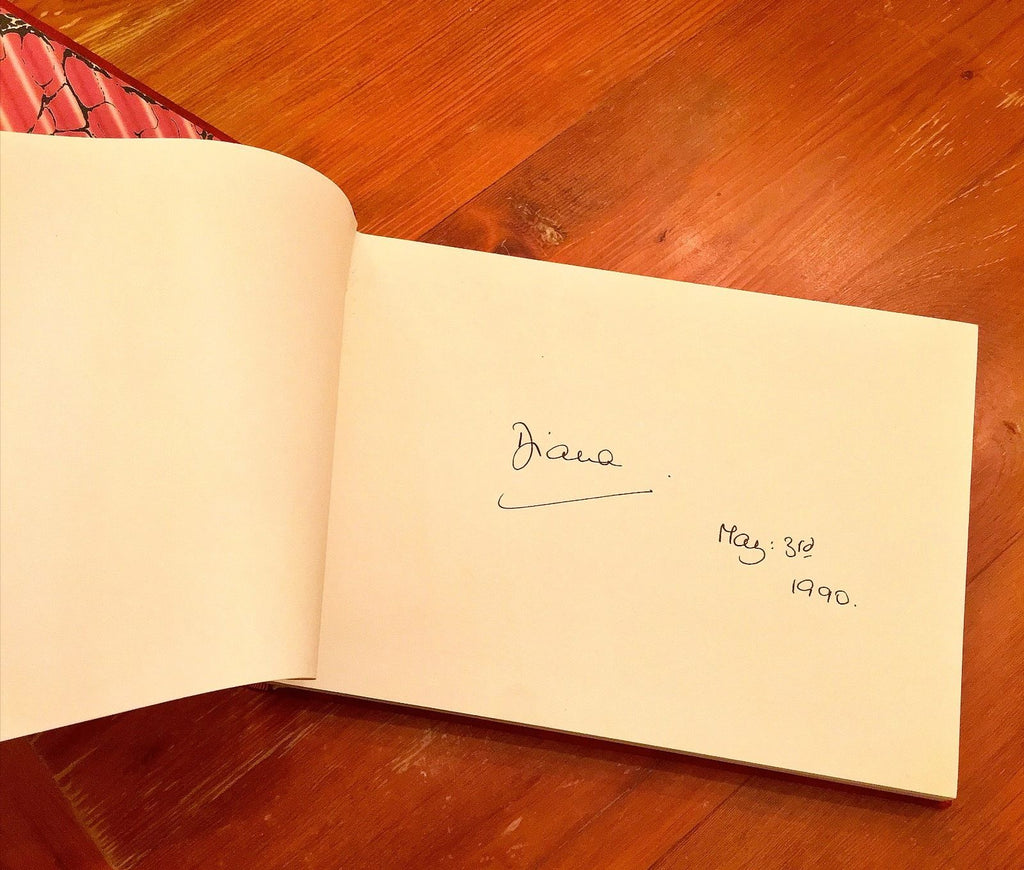 Diana
May: 3rd
1990.